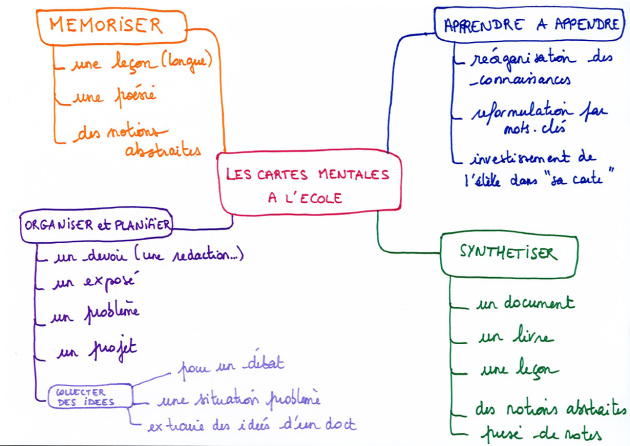 MEMORISER
une leçon (longue)
une poésie
des notions
abstraites
APPRENDRE A APPENDRE
réorganisation des
connaissances
reformulation par
mots-clés
investissement de
l'élève dans "sa carte"
LES CARTES MENTALES
A L'ECOLE
ORGANISER et PLANIFIER
un devoir (une redaction...)
un exposé
un problème
un projet
COLLECTER
DES IDEES
pour un débat
une situation problème
extraire des ideés d'un doct
SYNTHETISER
un document
un livre
une leçon
des notions abstraites
prise de notes